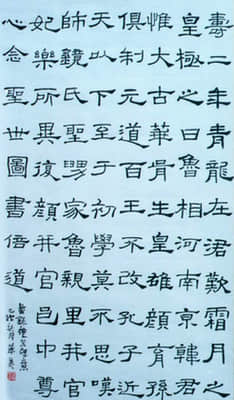 壽二年青龍在涒歎霜月之
皇極之日魯相河南京韓君
惟大古華胥生皇雄顏育
俱制元道百王不改孔子近
天以下至于初學莫不思嘆
師鏡氏聖舅家魯親里并官
妃樂所異復顏并官邑中尊
心念聖世圖書倍道